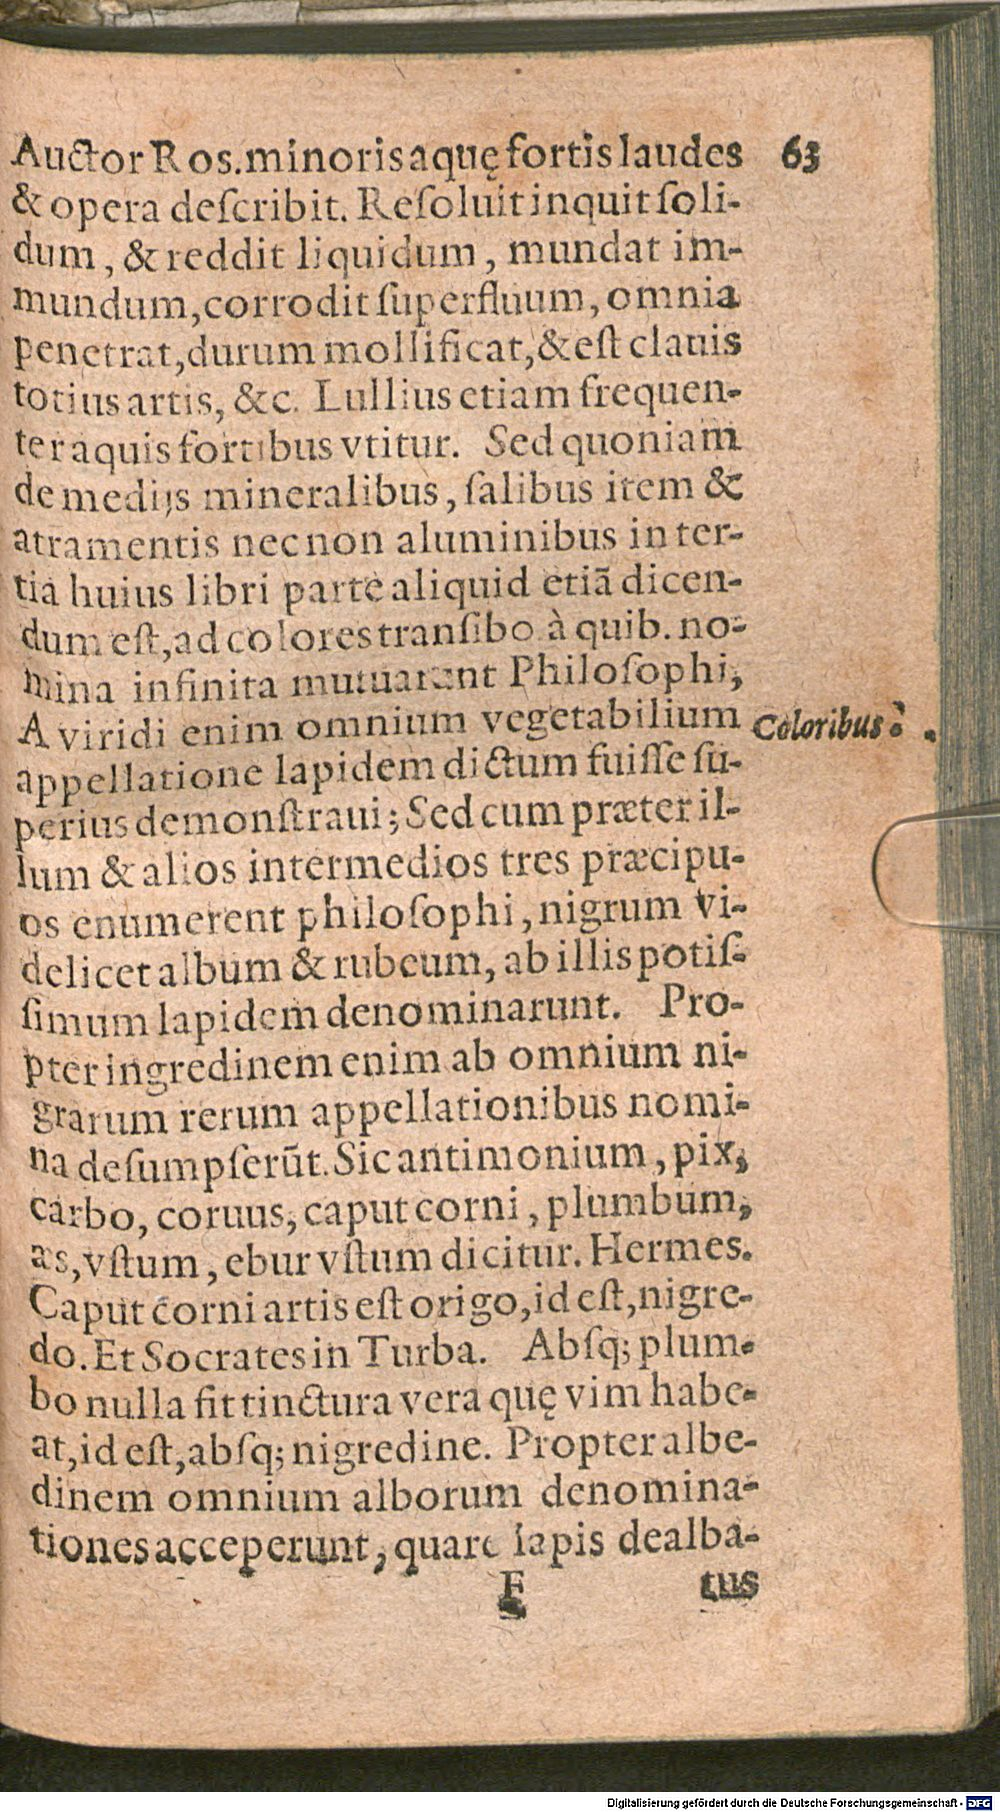 Auctor Ros. minoris aquę fortis laudes 63
& opera deſcribit. Reſoluit inquit ſoli-
dum, & reddit liquidum, mundat im-
mundum, corrodit ſuperfluum, omnia
penetrat, durum mollificat, & eſt clauis
totius artis, &c. Lullius etiam frequen-
ter aquis fortibus vtitur. Sed quoniam
de medijs mineralibus, ſalibus item &
atramentis necnon aluminibus in ter-
tia huius libri parte aliquid etiā dicen-
dum eſt, ad colores tranſibo à quib. no-
mina infinita mutuarunt Philoſophi,
A viridi enim omnium vegetabilium
Coloribus.
appellatione lapidem dictum fuiſſe ſu-
perius demonſtraui; Sed cum præter il-
lum & alios intermedios tres præcipu-
os enumerent philoſophi, nigrum vi-
delicet album & rubeum, ab illis potiſ-
ſimum lapidem denominarunt. Pro-
pter ingredinem enim ab omnium ni-
grarum rerum appellationibus nomi-
na deſumpſerūt. Sic antimonium, pix,
carbo, coruus, caput corni, plumbum,
æs, vſtum, ebur vſtum dicitur. Hermes.
Caput corni artis eſt origo, id eſt, nigre-
do. Et Socrates in Turba. Abſq; plum-
bo nulla fit tinctura vera quę vim habe-
at, id eſt, abſq; nigredine. Propter albe-
dinem omnium alborum denomina-
tiones acceperunt, quare lapis dealba-
F tus
Digitalisierung gefördert durch die Deutsche Forschungsgemeinschaft - DFG